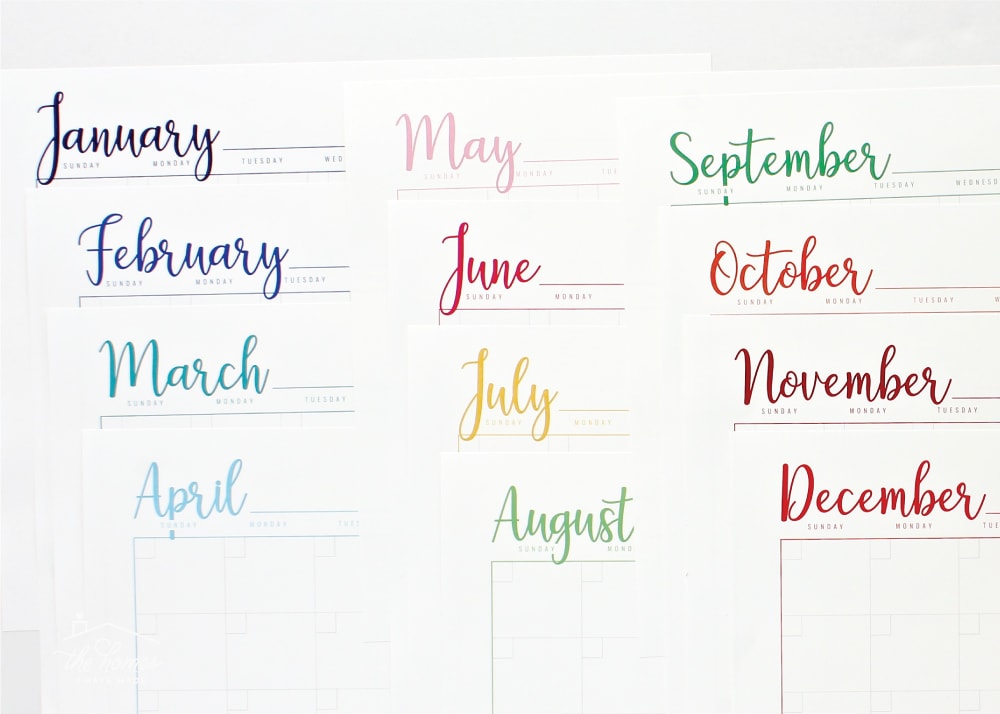 January
SUNDAY MONDAY TUESDAY WED
February
SUNDAY MONDAY TUESDAY
March
SUNDAY MONDAY TUESDAY
April
SUNDAY MONDAY TUE
May
SUNDAY MONDAY TU
June
SUNDAY MONDAY
July
SUNDAY MONDAY
August
SUNDAY MOND
September
SUNDAY MONDAY TUESDAY WEDNESD
October
SUNDAY MONDAY TUESDAY WE
November
SUNDAY MONDAY TUESDAY
December
SUNDAY MONDAY TU
the homes